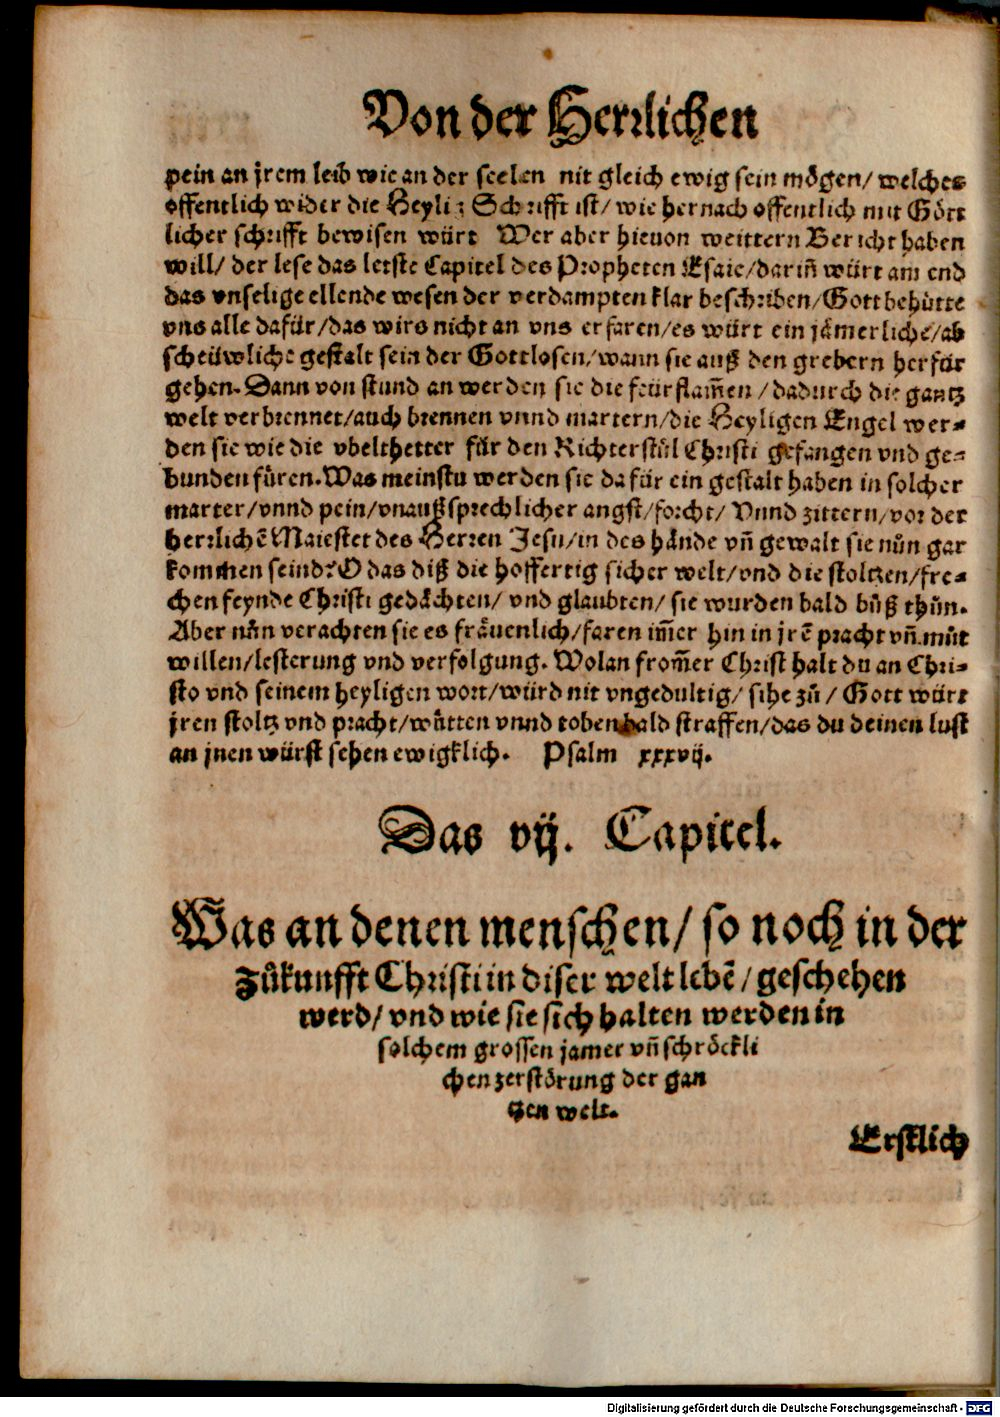 Von der Herrlichen
pein an jrem leib wie an der seelen nit gleich ewig sein mögen/ welches
offentlich wider die Heylig Schrifft ist/ wie hernach offentlich mit Gött
licher schrifft bewisen würt Wer aber hieuon weittern Bericht haben
will/ der lese das letste Capitel des Propheten Esaie/darin̄ würt am end
das vnselige ellende wesen der verdampten klar beschriben/Gott behütte
vns alle dafür/das wirs nicht an vns erfaren/es würt ein jämerliche/ab
scheüwliche gestalt sein der Gottlosen/wann sie auß den grebern herfür
gehen. Dann von stund an werden sie die feürflam̄en /dadurch die gantz
welt verbrennet/auch brennen vnnd martern/die Heyligen Engel wer-
den sie wie die vbelthetter für den Richterstůl Christi gefangen vnd ge-
bunden füren. Was meinstu werden sie da für ein gestalt haben in solcher
marter/vnnd pein/vnaußsprechlicher angst/forcht/ Vnnd zittern/vor der
herrlichē Maiestet des Herren Jesu/in des hände vn̄ gewalt sie nůn gar
kommen seind? O das diß die hoffertig sicher welt/vnd die stoltzen/fre-
chen feynde Christi gedächten/ vnd glaubten/ sie wurden bald bůß thůn.
Aber nůn verachten sie es fräuenlich/faren im̄er hin in jrē pracht vn̄ můt
willen/lesterung vnd verfolgung. Wolan from̄er Christ halt du an Chri-
sto vnd seinem heyligen wort/würd nit vngedultig/ sihe zů/ Gott würt
jren stoltz vnd pracht/wütten vnnd toben bald straffen/das du deinen lust
an jnen würst sehen ewigklich. Psalm xxxvij.
Das vij. Capitel.
Was an denen menschen/ so noch in der
zůkunfft Christi in diser welt lebē/ geschehen
werd/ vnd wie sie sich halten werden in
solchem grossen jamer vn̄ schröckli
chen zerstörung der gan
tzen welt.
Erstlich
Digitalisierung gefördert durch die Deutsche Forschungsgemeinschaft - DFG